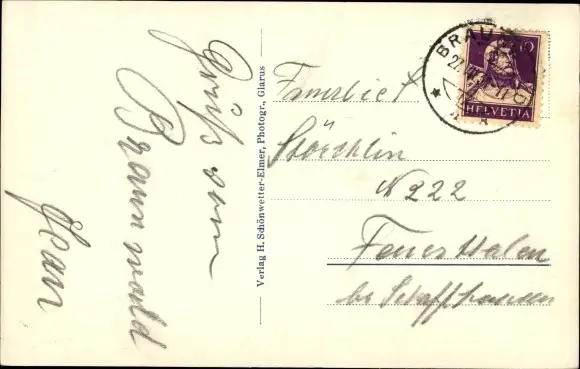 Grüß vom
Braunwald
Jean
Verlag H. Schönwetter-Elmer, Photogr., Glarus
BRAU
10
HELVETIA
Familie
Stoecklin
N 222
Feuerthalen
bei Schaffhausen